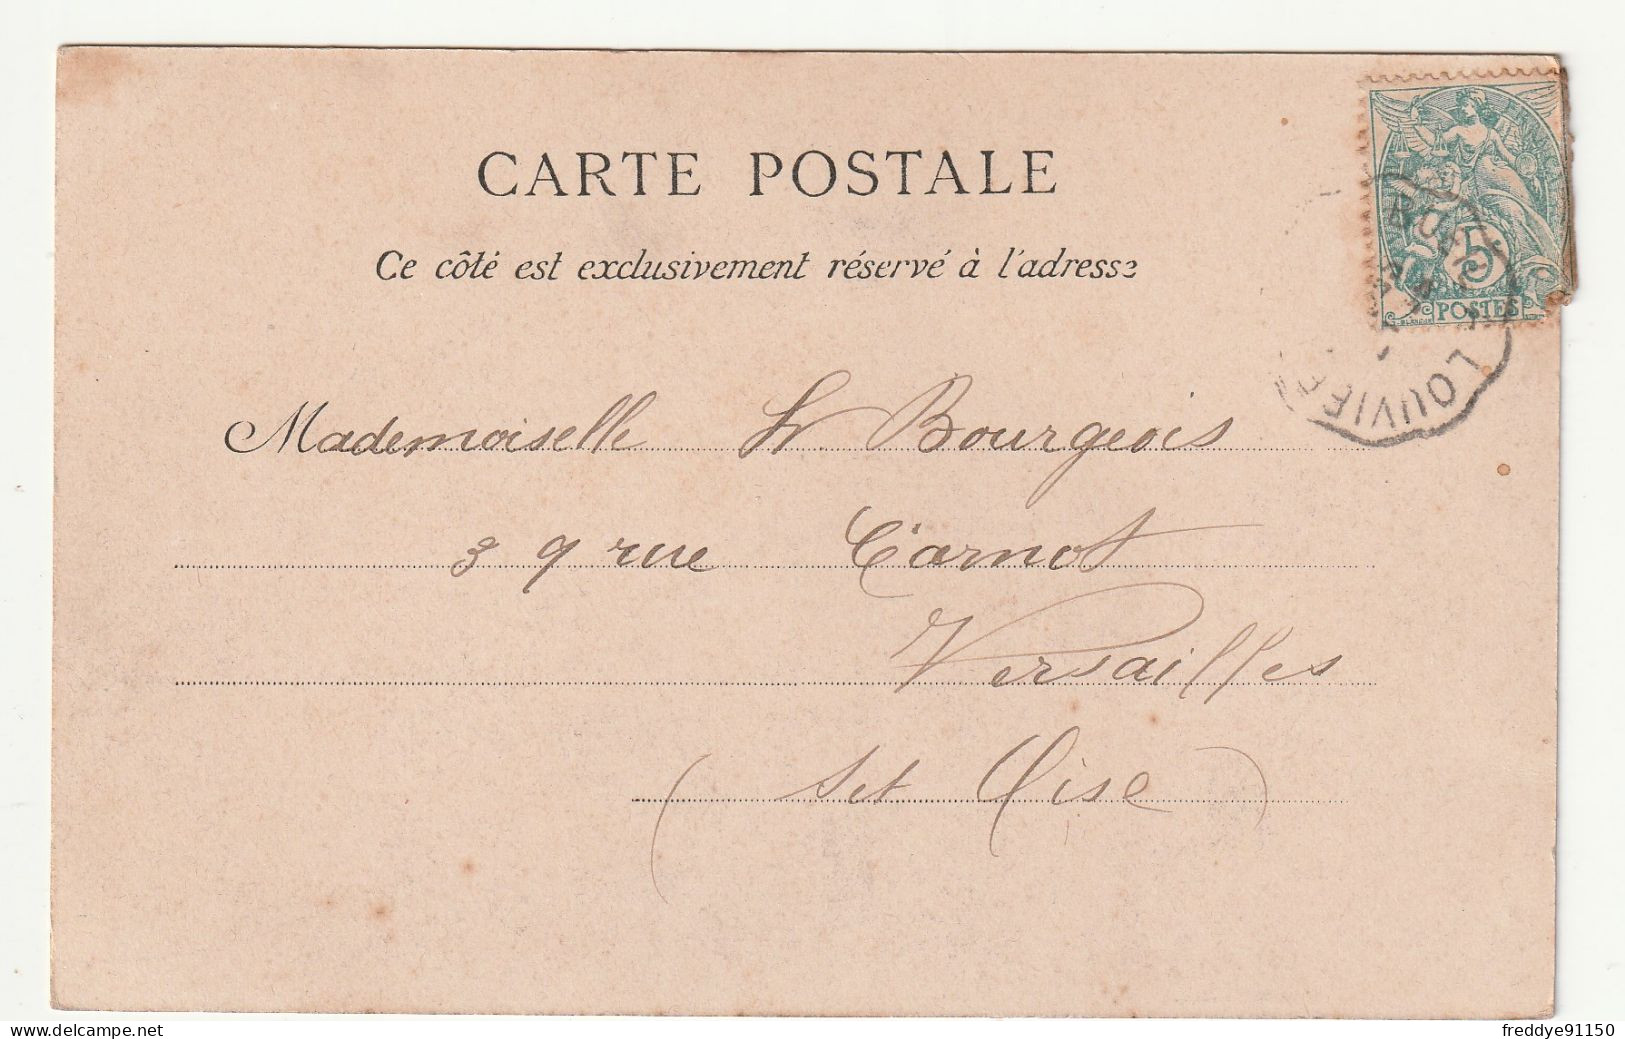 CARTE POSTALE
Ce côté est exclusivement réservé à l'adresse
5
POSTES
LOUVIE
Mademoiselle Bourgeois
39 rue Carnot
Versailles
(Set Oise)
freddye91150